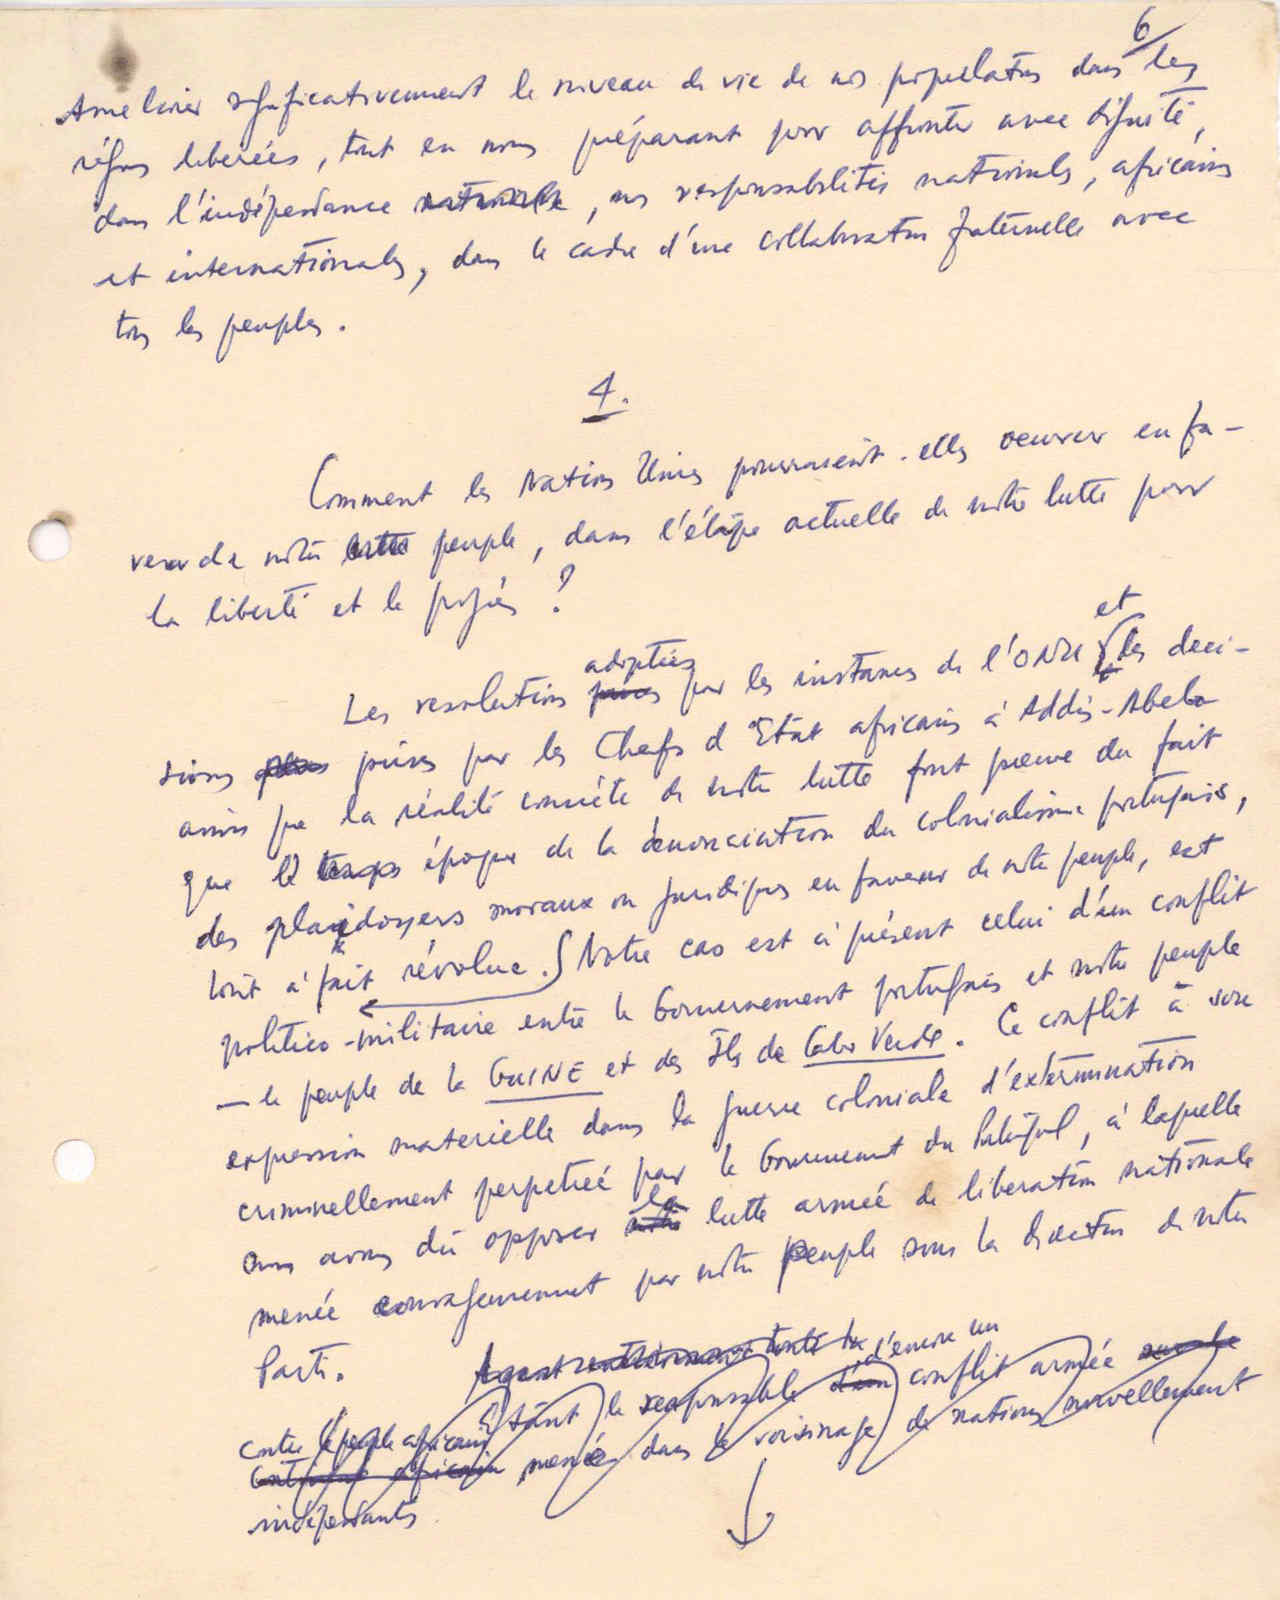 6
Ameliorer significativement le niveau de vie de nos populations dans les
régions liberées, tout en nous préparant pour affronter avec dignité,
dans l'indépendance nationale, nos responsabilités nationales, africains
et internationales, dans le cadre d'une collaboration fraternelle avec
tous les peuples.
4.
Comment les Nations Unies pourraient-elles oeuvrer en fa-
veur de notre lutte peuple, dans l'étape actuelle de notre lutte pour
la liberté et le progrès ?
adoptées et
Les resolutions prises par les instances de l'ONU les deci-
sions prises par les Chefs d'Etat africains à Addis-Abeba
ainsi que la réalité concrète de notre lutte font preuve du fait
que le temps époque de la denonciation du colonialisme portugais,
des plaidoyers moraux ou juridiques en faveur de notre peuple, est
tout à fait révolue. Notre cas est à présent celui d'un conflit
politico-militaire entre le Gouvernement portugais et notre peuple
— le peuple de la GUINE et des Iles de Cabo Verde. Ce conflit à son
expression materielle dans la guerre coloniale d'extermination
criminellement perpetreé par le Gouvernement du Portugal, à laquelle
la
nous avons dû opposer notre lutte armée de liberation nationale
menée courageusement par notre peuple sous la direction de notre
Parti.
d'encore un
Etant le responsable d'un conflit armée
contre le peuple africain
africain menée dans le voisinage de nations nouvellement
indépendants